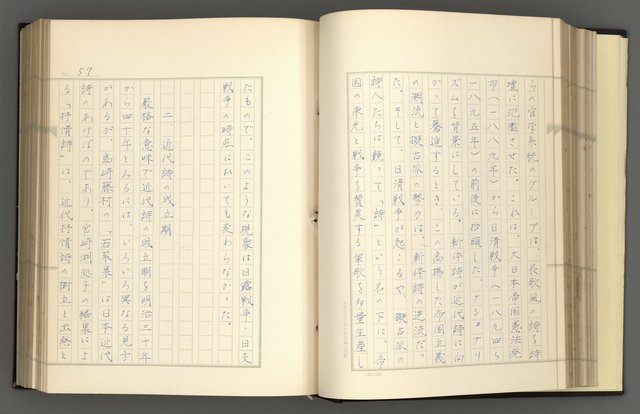 らの官学系統のグループは、長歌風の詩を詩
壇に氾濫させた。これは、大日本帝国憲法発
布(一八八九年)から日清戦争(一八九四〜
一八九五年)の前後に抬頭した、ナショナリ
ズムを背景にしている。新体詩が近代詩に向
かって驀進するとき、この高揚した帝国主義
の潮流と擬古派の勢力は、新体詩の逆流だっ
た。そして、日清戦争が起こるや、擬古派の
詩人たちは競って「詩」という名の下に、帝
国の栄光と戦争を賛美する軍歌を多量生産し
No. 57
たもので、このような現象は日露戦争・日支
戦争の時点においても変わらなかった。
二、近代詩の成立期
厳格な意味で近代詩の成立期を明治三十年
から四十年とみるには、いろいろ異なる見方
があるが、島崎藤村の「若菜集」は日本近代
詩のあけぼのであり、宮崎湖処子の編集によ
る「抒情詩」は、近代抒情詩の樹立と出発と